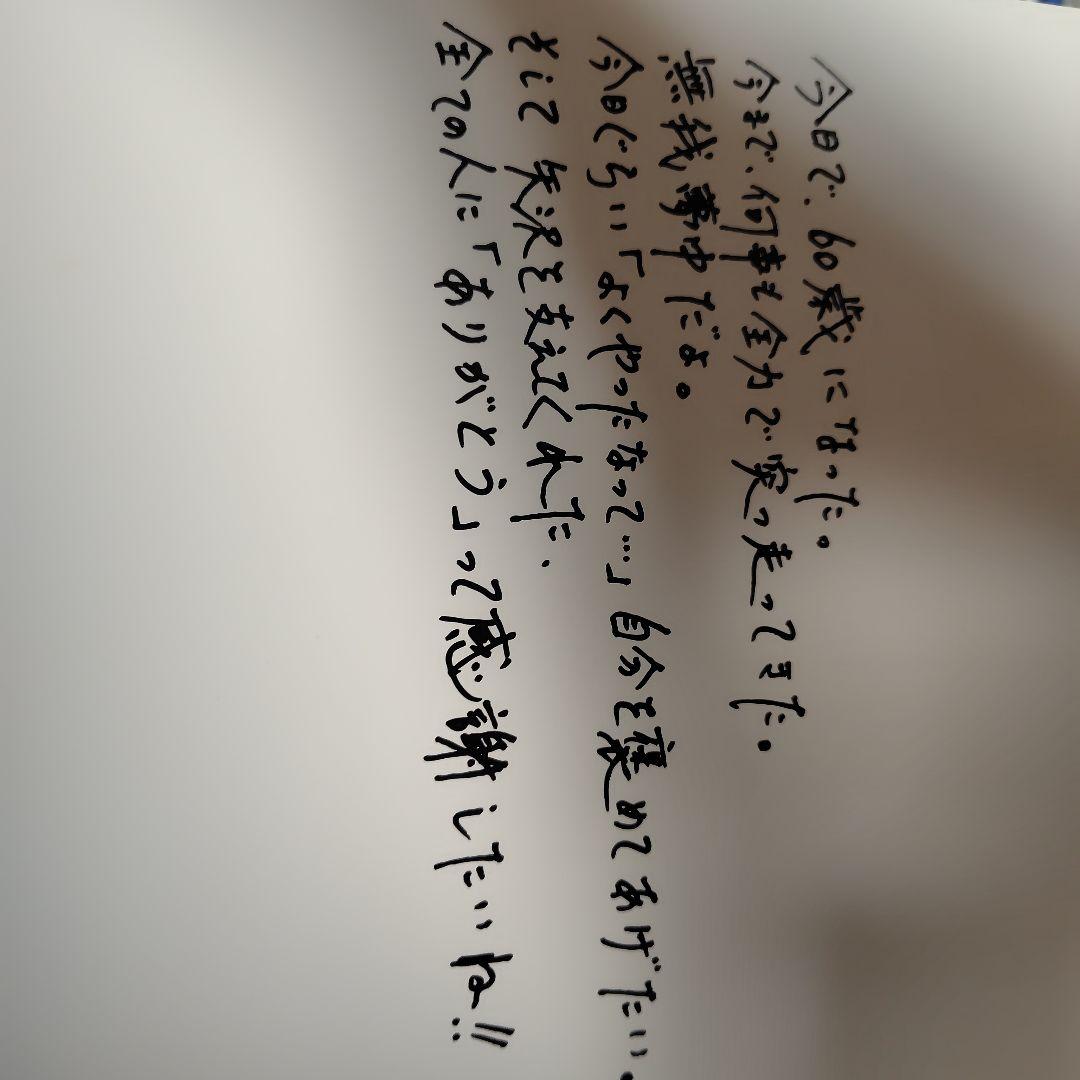 今日で、60歳になった。
今まで、何事も全力で突っ走ってきた。
無我夢中だよ。
今日ぐらい「よくやったなって…」自分を褒めてあげたい。
そして矢沢を支えてくれた、
全ての人に「ありがとう」って感謝したいね!!